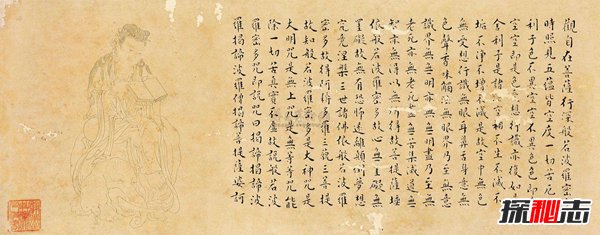 觀自在菩薩行深般若波羅蜜多
時照見五蘊皆空度一切苦厄舍
利子色不異空空不異色色即是
空空即是色受想行識亦復如是
舍利子是諸法空相不生不滅不
垢不淨不增不減是故空中無色
無受想行識無眼耳鼻舌身意無
色聲香味觸法無眼界乃至無意
識界無無明亦無無明盡乃至無
老死亦無老死盡無苦集滅道無
智亦無得以無所得故菩提薩埵
依般若波羅蜜多故心無罣礙無
罣礙故無有恐怖遠離顛倒夢想
究竟涅槃三世諸佛依般若波羅
蜜多故得阿耨多羅三藐三菩提
故知般若波羅蜜多是大神咒是
大明咒是無上咒是無等等咒能
除一切苦真實不虛故說般若波
羅蜜多咒即說咒曰揭諦揭諦波
羅揭諦波羅僧揭諦菩提薩婆訶
探秘志